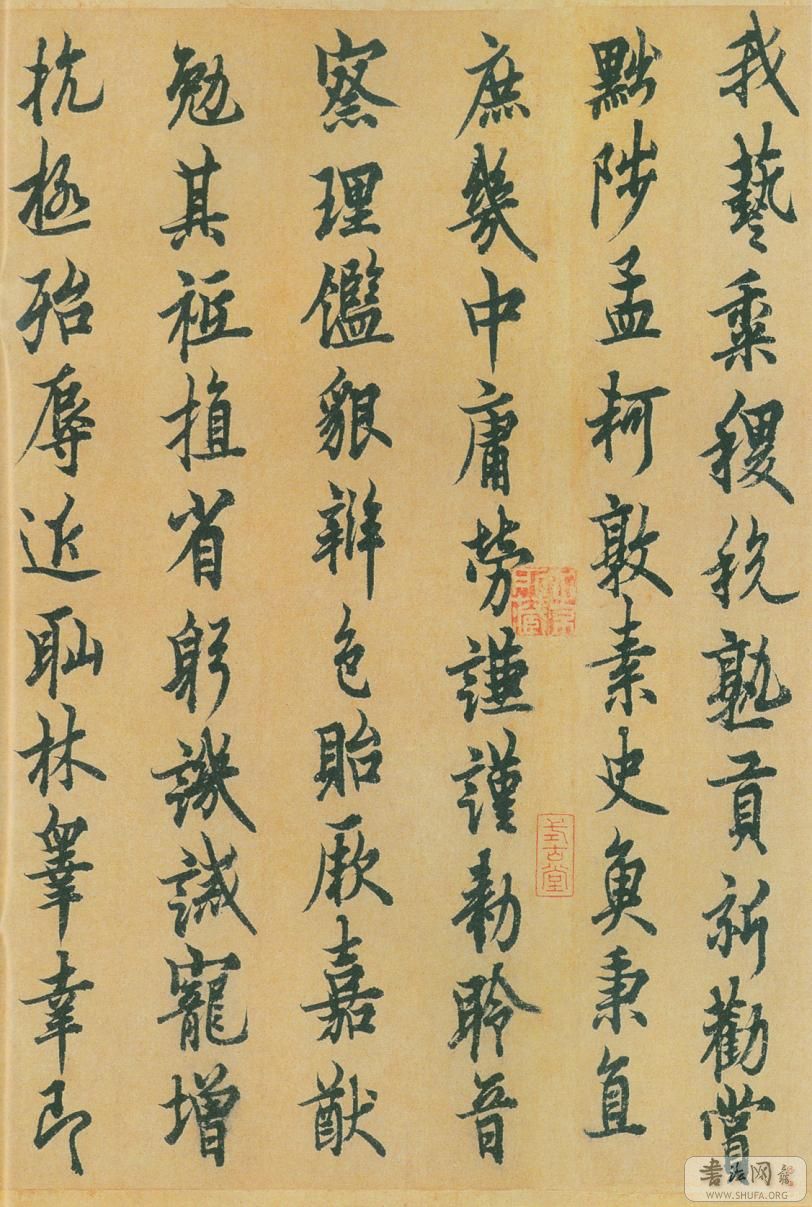 我藝黍稷稅熟貢新勸賞
黜陟孟軻敦素史魚秉直
庶幾中庸勞謙謹勅聆音
察理鑑貌辨色貽厥嘉猷
勉其祗植省躬譏誡寵增
抗極殆辱近耻林皋幸即
式古堂
书法网
WWW.SHUFA.ORG